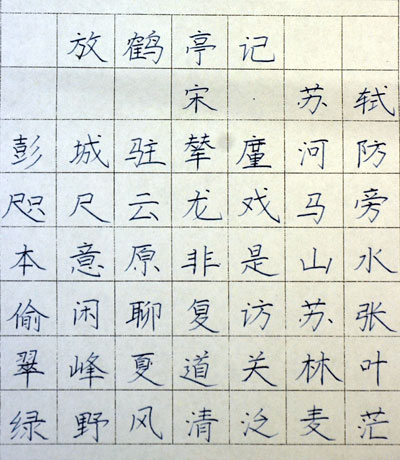 放鹤亭记
宋·苏轼
彭城驻辇廑河防
咫尺云龙戏马旁
本意原非是山水
偷闲聊复访苏张
翠峰夏道关林叶
绿野风清泛麦茫